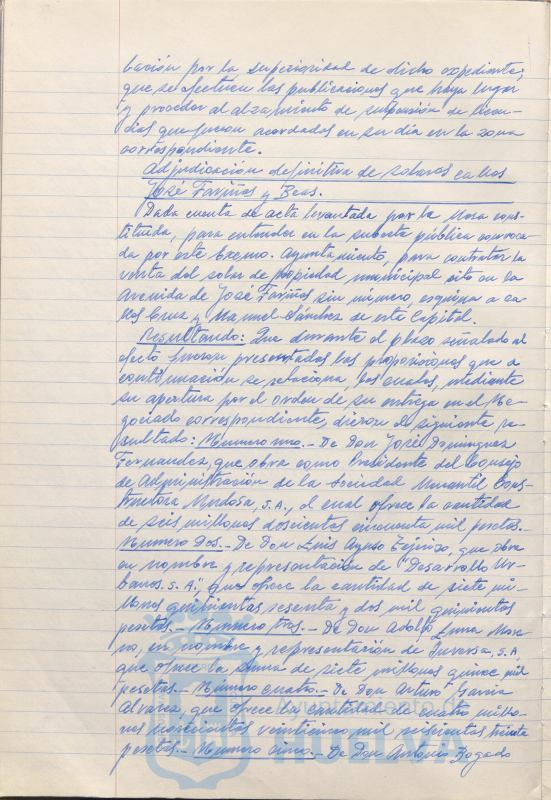 bación por la superioridad de dicho expediente,
que se efectuen las publicaciones que haya lugar
y proceder al alzamiento de suspensión de licen-
cias que fueron acordadas en su día en la zona
correspondiente.
Adjudicación definitiva de solares calles
José Fariñas y Beas.
Dada cuenta de acta levantada por la Mesa cons-
tituida, para entender en la subasta pública convoca-
da por este Excmo. Ayuntamiento, para contratar la
venta del solar de propiedad municipal sito en la
Avenida de José Fariñas sin número, esquina a ca-
lles Cruz y Manuel Sánchez de esta Capital.
Resultando: Que durante el plazo señalado al
efecto fueron presentadas las proposiciones que a
continuación se relaciona, las cuales, mediante
su apertura por el orden de su entrega en el Ne-
gociado correspondiente, dieron el siguiente re-
sultado: Número uno.- De Don José Domínguez
Fernandez, que obra como Presidente del Consejo
de Administración de la Sociedad Mercantil Cons-
tructora S.A., el cual ofrece la cantidad
de seis millones doscientas cincuenta mil pesetas.
Número Dos.- De Don Luis Ayuso que obra
en nombre y representación de "Desarrollo Ur-
banos. S.A.", que ofrece la cantidad de siete mi-
llones quinientas sesenta y dos mil quinientas
pesetas.- Número tres.- De Don Adolfo Luna More-
no, en nombre y representación de Inversa, S.A,
que ofrece la suma de siete millones quince mil
pesetas.- Número cuatro.- De Don Arturo García
Alvarez, que ofrece la cantidad de cuatro millo-
nes setecientas veinticinco mil seiscientas treinta
pesetas.- Número cinco.- De Don Antonio Bogado
Ayuntamiento de
HUELVA